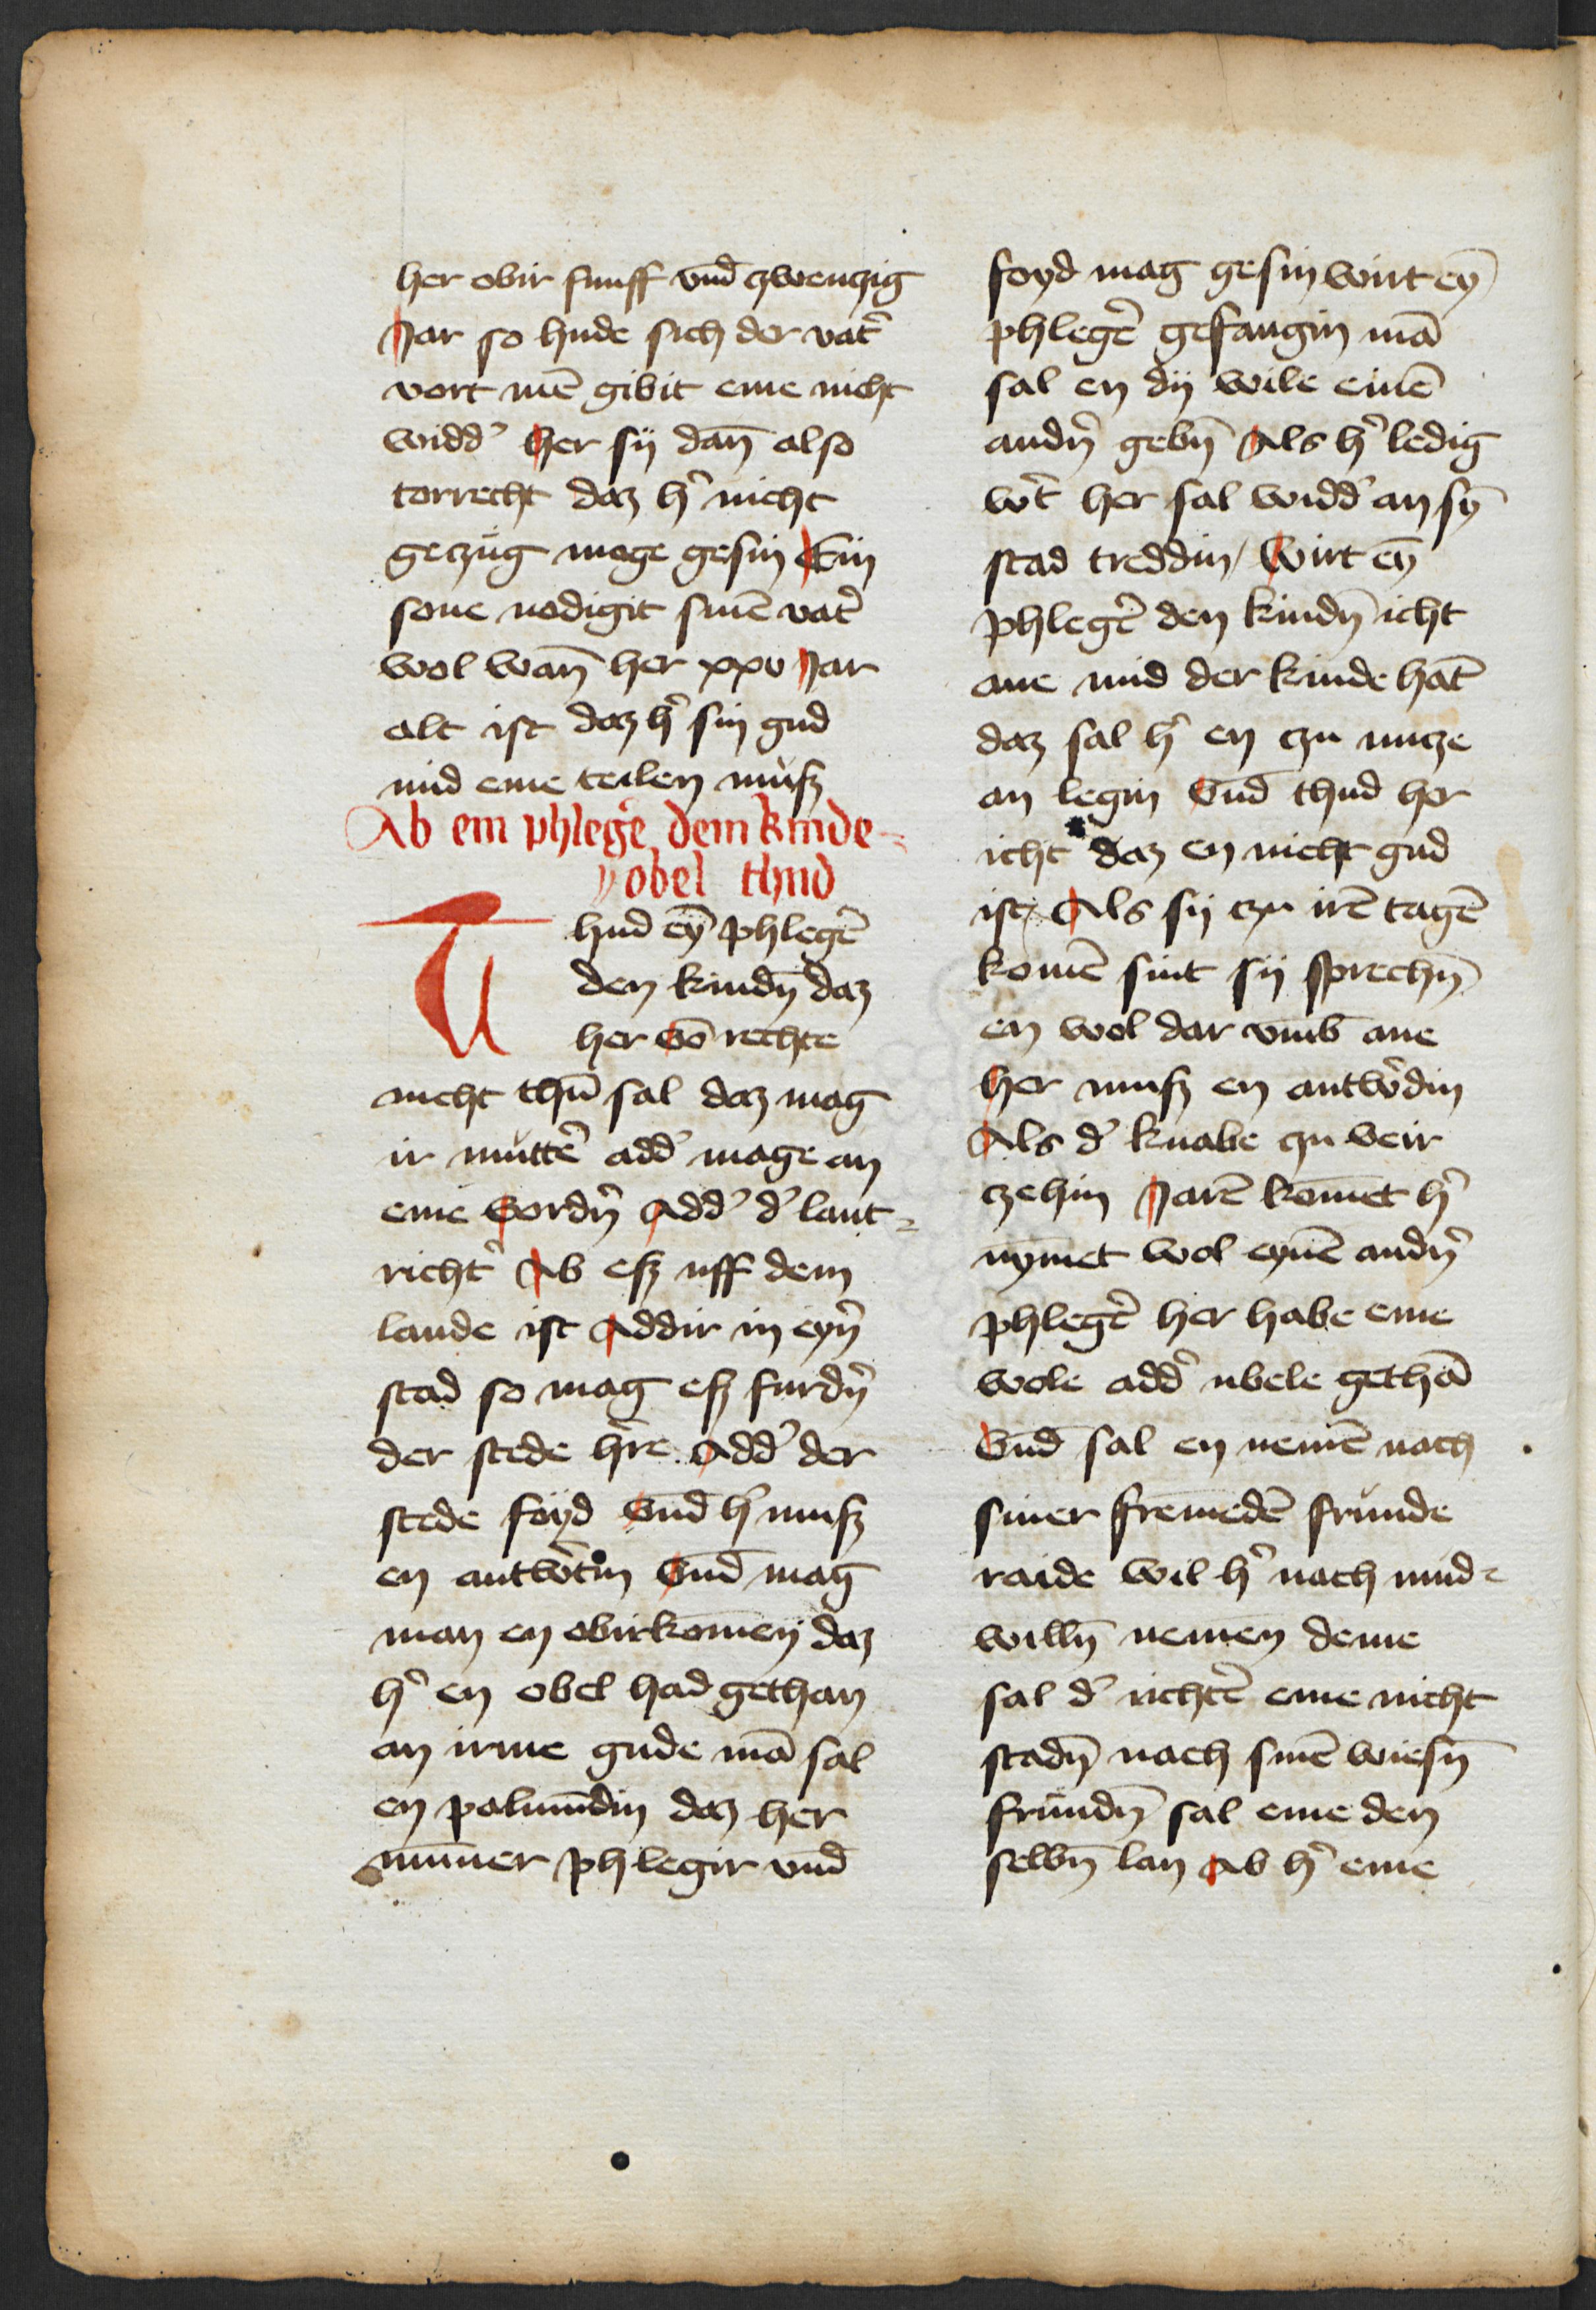 her obir funff vnd̄ zwenzig
Jar so hude sich der vat̾
vort mē gibit eme nicht
widd̾ her sij dan̄ also
torrecht daz h̾ nicht
geczug moge gesin Ein
sone nodigit sinē vat̾
wol wan̄ her xxv Jar
alt ist daz h̾ sin gud
mid eme teilen muſz
Ab em phleg̾e dem kinde
obel thud
Thud eȳ phleg̾
den kindn̄ daz
her vō rechte
nicht thū sal daz mag
ir mutt̾ add̾ mage an
eme vordn̾ Add̾ d̾ lant
richt̾ Ab eſz uff dem
lande ist Addir in eyn̾
stad so mag eſz furdn̾
der stede h̾re Add̾ der
stede foyd vnd̄ h̾ muſz
en antw̾tin vnd̄ mag
man en obirkomēn daz
h̾ en obel had gethan
an irme gude mā sal
en palmūdin daz her
nūmer phlegir vnd̄
foyd mag gesin wirt eȳ
phleg̾ gefangin mā
sal en dij wile einē
andn̾ gebn̄ Als h̾ ledig
w̾t her sal widd̾ an sȳ
stad treddin / wirt eȳ
phleg̾ den kindn̄ icht
ane mid der kinde hāt
daz sal h̾ en czu nucze
an legin vnd̄ thud her
icht daz en nicht gud
ist / Als sij czu irē tagē
komē sint sij sprechn̄
en wol dar vmb̄ ane
her muſz en antw̾din
Als d̾ knabe zu veir
czehin Jarē kom̄et h̾
nym̄et wol eynē andn̾
phleg̾ her habe eme
wole add̾ ubele gethā
vnd̄ sal en nemē nach
siner frem̄edē frunde
raide wil h̾ nach mud
willn̄ nem̄en deme
sal d̾ richt̾ eme nicht
stadn̄ nach sinē wiesn̄
frundn̄ sal eme den
selbn̄ lan Ab h̾ eme